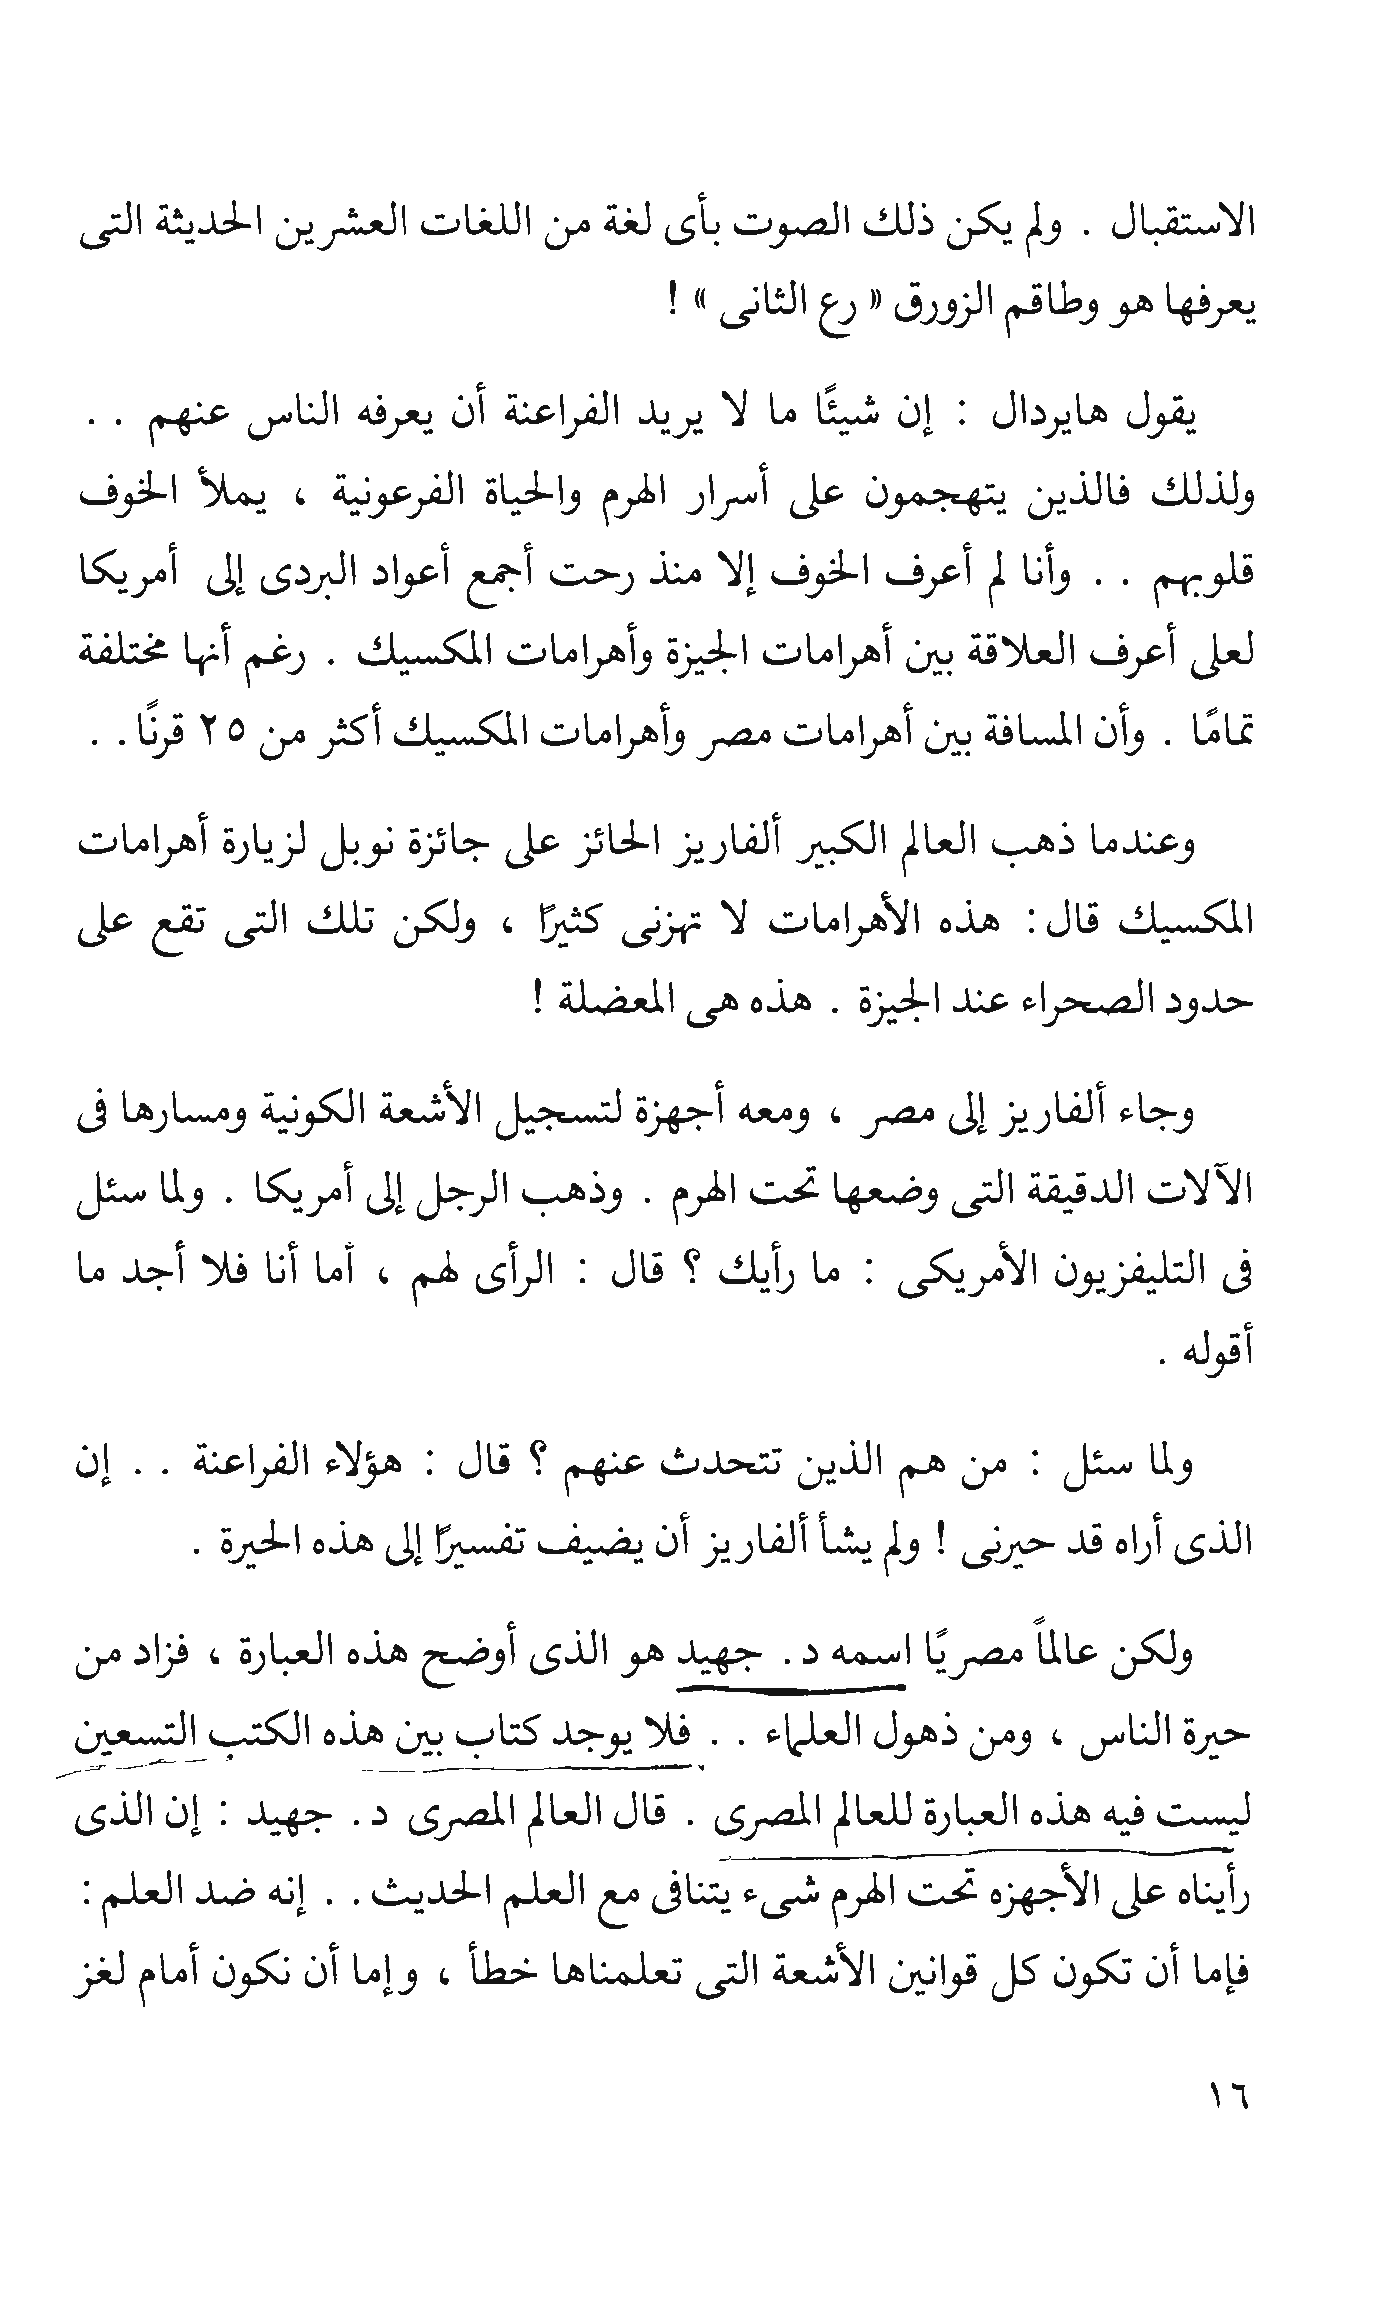 الاستقبال . ولم يكن ذلك الصوت بأى لغة من اللغات العشرين الحديثة التى
يعرفها هو وطاقم الزورق « رع الثانى » !
يقول هايردال : إن شيئًا ما لا يريد الفراعنة أن يعرفه الناس عنهم . .
ولذلك فالذين يتهجمون على أسرار الهرم والحياة الفرعونية ، يملأ الخوف
قلوبهم . . وأنا لم أعرف الخوف إلا منذ رحت أجمع أعواد البردى إلى أمريكا
لعلى أعرف العلاقة بين أهرامات الجيزة وأهرامات المكسيك . رغم أنها مختلفة
تمامًا . وأن المسافة بين أهرامات مصر وأهرامات المكسيك أكثر من ٢٥ قرنًا . .
وعندما ذهب العالم الكبير ألفاريز الحائز على جائزة نوبل لزيارة أهرامات
المكسيك قال : هذه الأهرامات لا تهزنى كثيرًا ، ولكن تلك التى تقع على
حدود الصحراء عند الجيزة . هذه هى المعضلة !
وجاء ألفاريز إلى مصر ، ومعه أجهزة لتسجيل الأشعة الكونية ومسارها فى
الآلات الدقيقة التى وضعها تحت الهرم . وذهب الرجل إلى أمريكا . ولما سئل
فى التليفزيون الأمريكى : ما رأيك ؟ قال : الرأى لهم ، أما أنا فلا أجد ما
أقوله .
ولما سئل : من هم الذين تتحدث عنهم ؟ قال : هؤلاء الفراعنة . . إن
الذى أراه قد حيرنى ! ولم يشأ ألفاريز أن يضيف تفسيرًا إلى هذه الحيرة .
ولكن عالماً مصريًا اسمه د . جهيد هو الذى أوضح هذه العبارة ، فزاد من
حيرة الناس ، ومن ذهول العلماء . . فلا يوجد كتاب بين هذه الكتب التسعين
ليست فيه هذه العبارة للعالم المصرى . قال العالم المصرى د . جهيد : إن الذى
رأيناه على الأجهزه تحت الهرم شىء يتنافى مع العلم الحديث . . إنه ضد العلم :
فإما أن تكون كل قوانين الأشعة التى تعلمناها خطأ ، وإما أن نكون أمام لغز
١٦